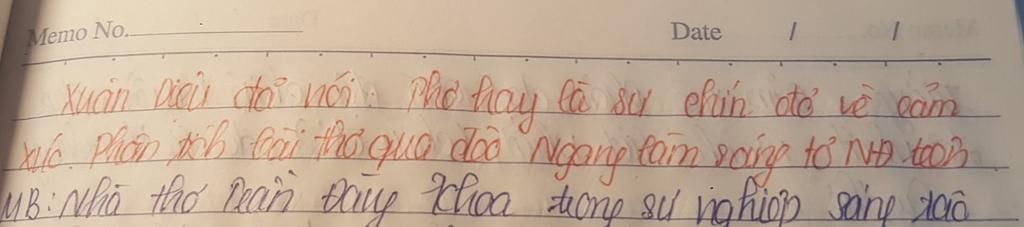 Memo No. Date / /
Xuân Diệu đã nói: Thơ hay là sự chín đỏ về cảm
xúc. Phân tích bài thơ qua đèo Ngang làm sáng tỏ NĐ trên
MB: Nhà thơ Trần Đăng Khoa trong sự nghiệp sáng tác